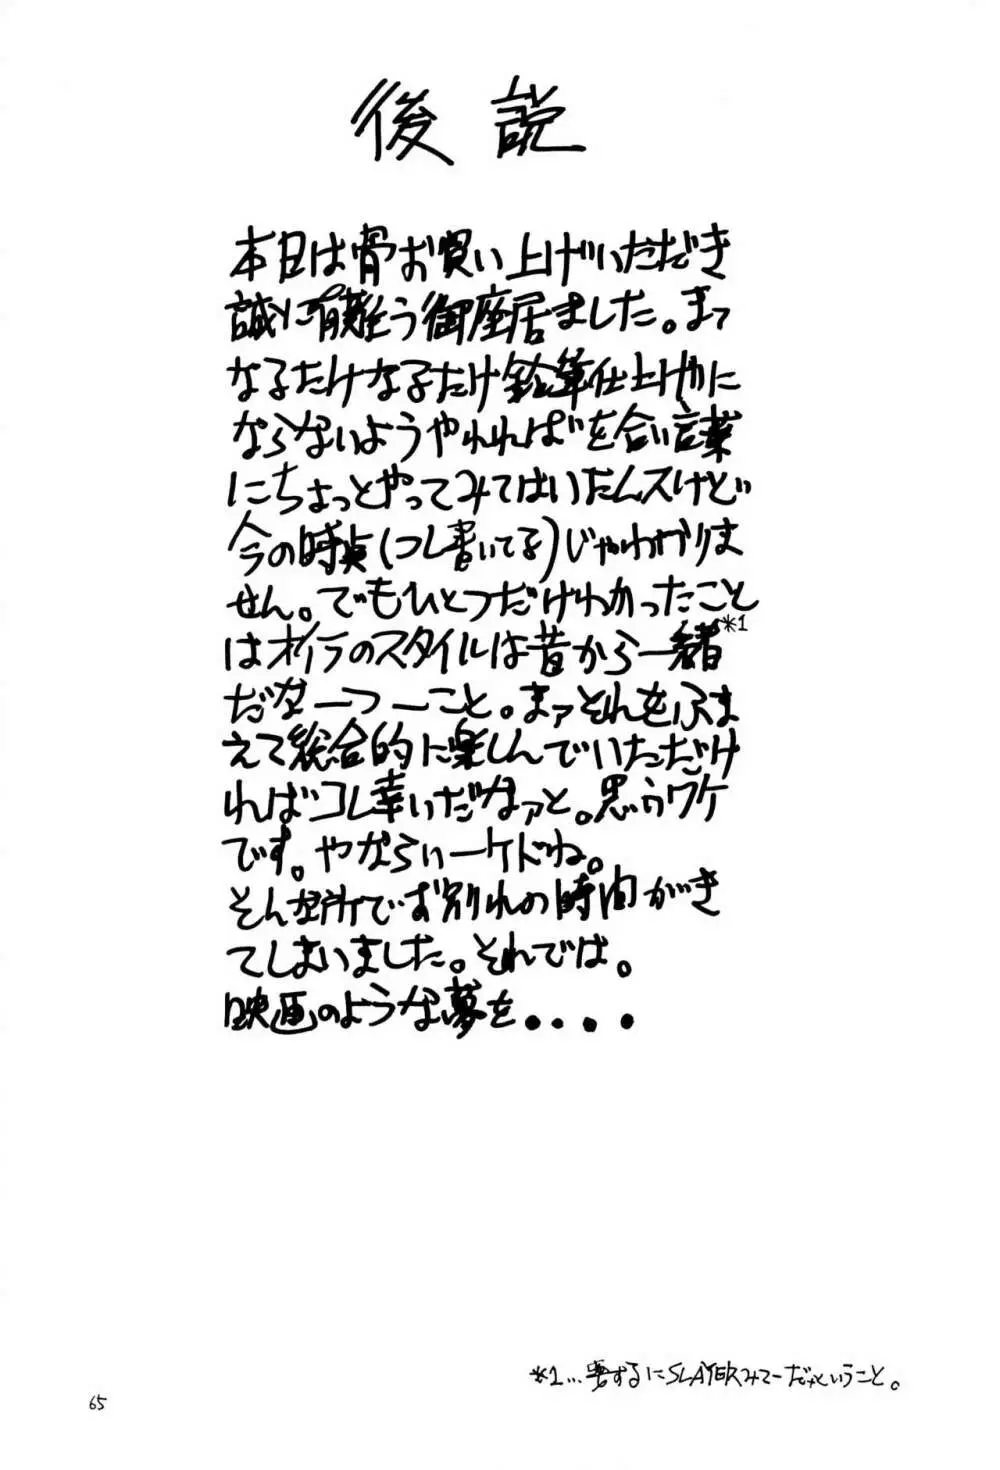 後説
本日は骨お買い上げいただき
誠に有難う御座居ました。まて
なるたけなるたけ鉛筆仕上げやに
ならないようやれればを合い言葉
にちょっとやってみてはいたんスけど
今の時点(つし書いてる)じゃわかりま
せん。でもひとつだけわかったこと
はオイラのスタイルは昔から一緒*1
だなーつーこと。まァそれをふま
えて総合的に楽しんでいただけ
ればコレ幸いだなァと。思うワケ
です。やならいーケドね。
そんな所でお別れの時間がき
てしまいました。それでは。
映画のような夢を....
*1...要するにSLAYERみてーだなということ。
65